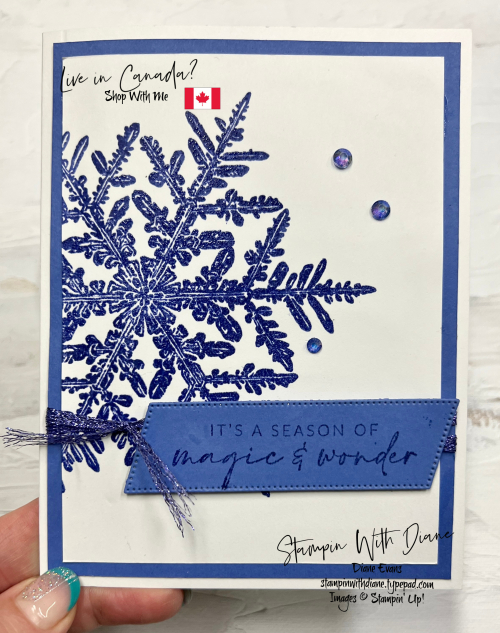 Live in Canada?
Shop With Me
IT'S A SEASON OF
magic & wonder
Stampin With Diane
Diane Evans
stampinwithdiane.typepad.com
Images © Stampin' Up!